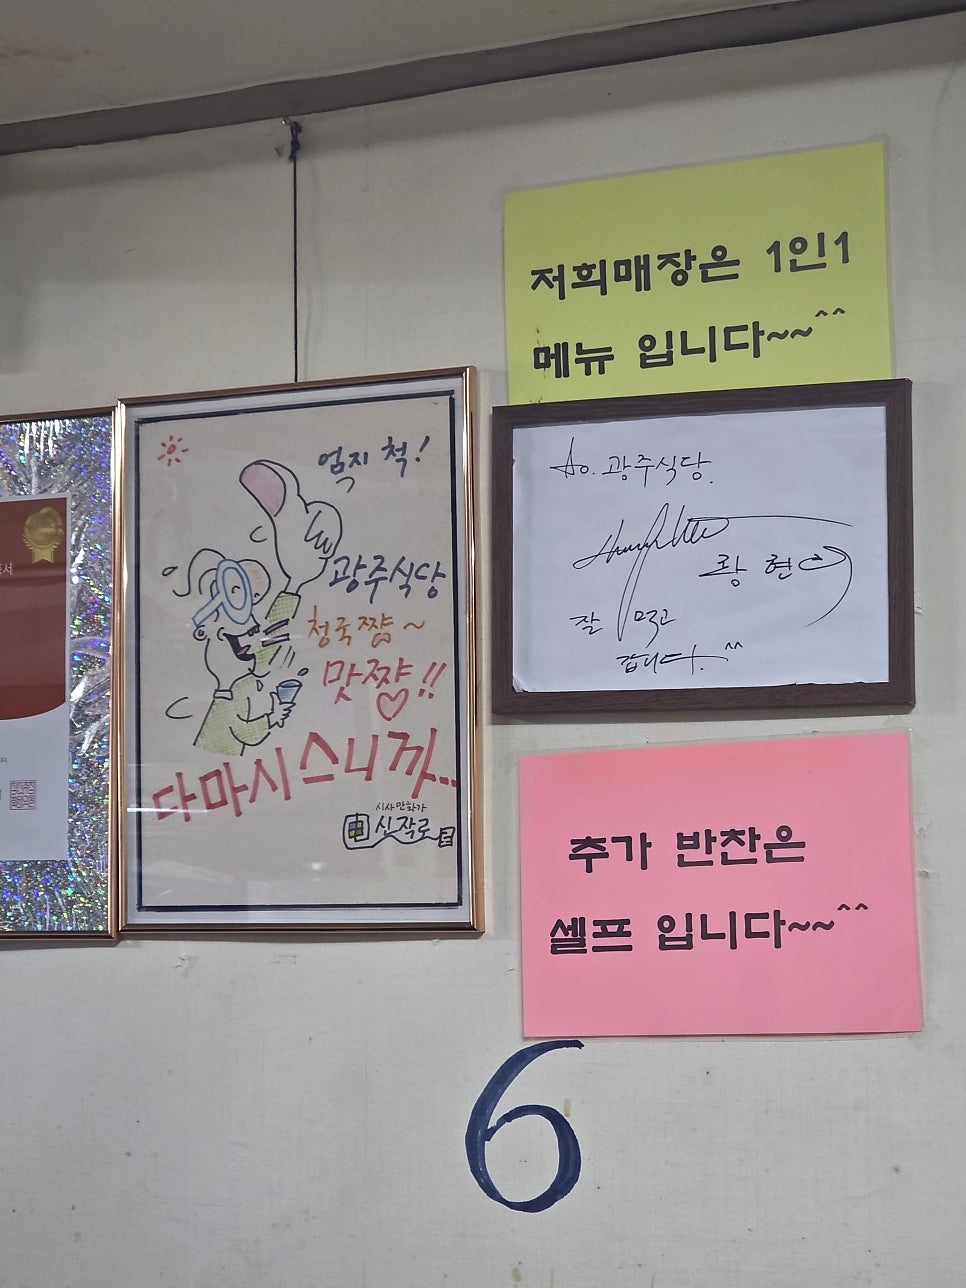 저희매장은 1인1
메뉴 입니다~~^^
엄지 척!
광주식당
청국짱~
맛짱!!
다마시스니까...
시사만화가
신작로
to. 광주식당.
황현
잘 먹고
갑니다.^^
추가 반찬은
셀프 입니다~~^^
6